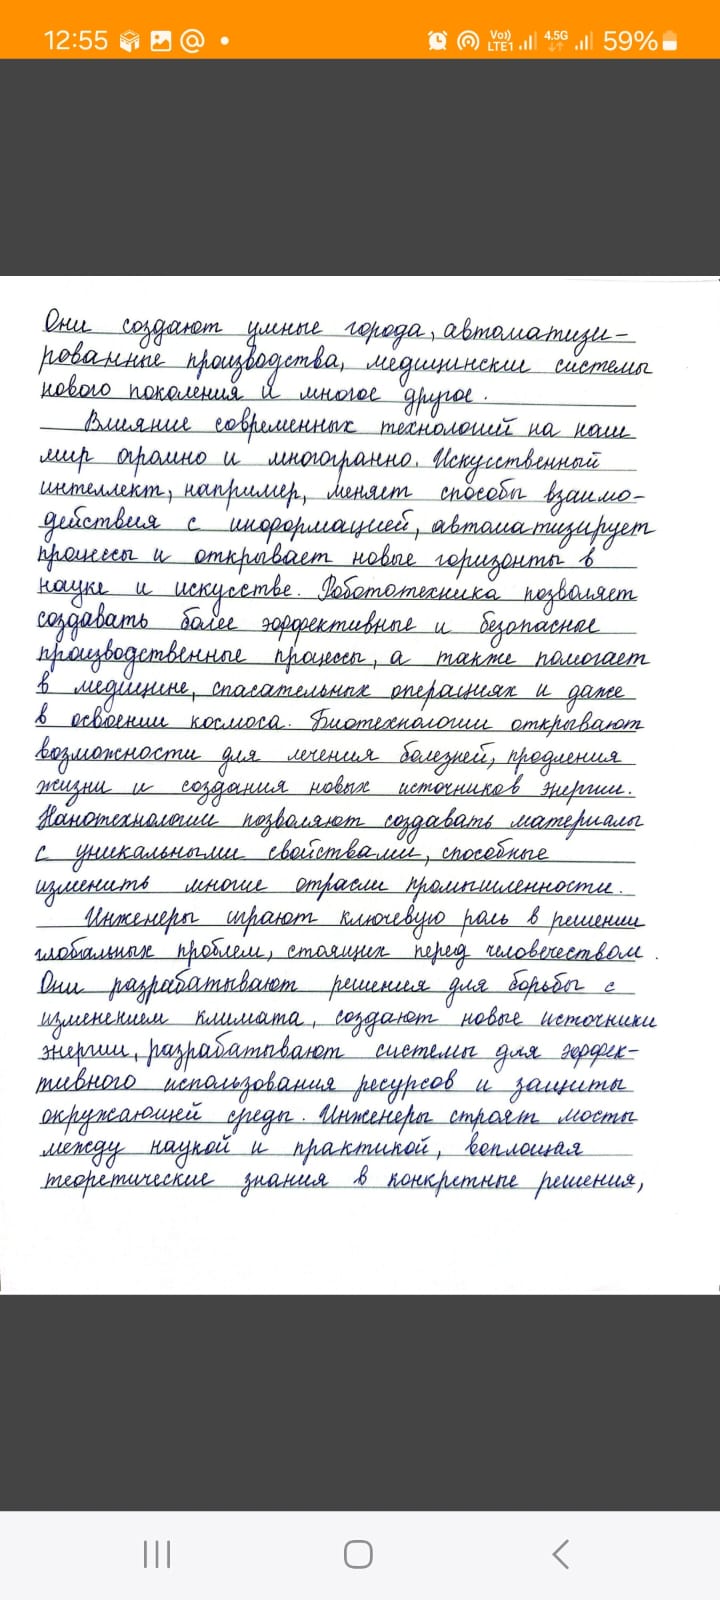 12:55
Vo))
LTE1
4.5G
59%
Они создают умные города, автоматизи-
рованные производства, медицинские системы
нового поколения и многое другое.
Влияние современных технологий на наш
мир огромно и многогранно. Искусственный
интеллект, например, меняет способы взаимо-
действия с информацией, автоматизирует
процессы и открывает новые горизонты в
науке и искусстве. Робототехника позволяет
создавать более эффективные и безопасные
производственные процессы, а также помогает
в медицине, спасательных операциях и даже
в освоении космоса. Биотехнологии открывают
возможности для лечения болезней, продления
жизни и создания новых источников энергии.
Нанотехнологии позволяют создавать материалы
с уникальными свойствами, способные
изменить многие отрасли промышленности.
Инженеры играют ключевую роль в решении
глобальных проблем, стоящих перед человечеством.
Они разрабатывают решения для борьбы с
изменением климата, создают новые источники
энергии, разрабатывают системы для эффек-
тивного использования ресурсов и защиты
окружающей среды. Инженеры строят мосты
между наукой и практикой, воплощая
теоретические знания в конкретные решения,